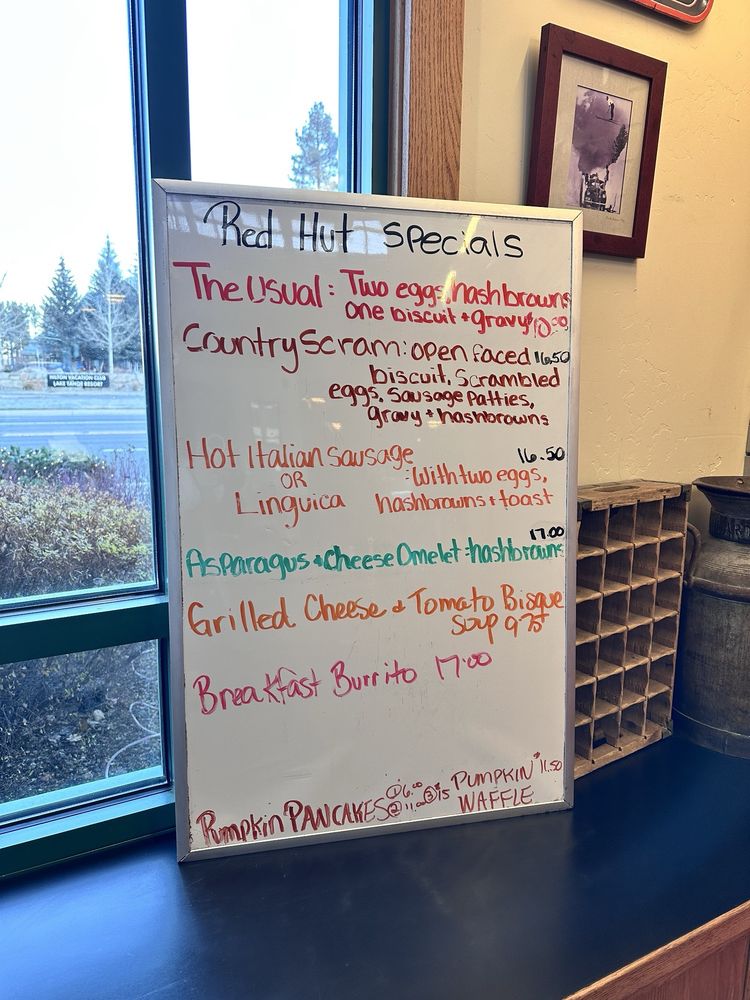 Red Hut Specials
The Usual: Two eggs, hash browns
one biscuit + gravy $10.50
Country Scram: open faced 16.50
biscuit, Scrambled
eggs, Sausage Patties,
gravy + hashbrowns
Hot Italian Sausage 16.50
OR :With two eggs,
Linguica hashbrowns + toast
17.00
Asparagus + Cheese Omelet :hashbrowns
Grilled Cheese & Tomato Bisque
Soup 9.75
Breakfast Burrito 17.00
Pumpkin PANCAKES ① 6.00 ② 11.00 ③ 15 PUMPKIN $11.50
WAFFLE
HILTON VACATION CLUB
LAKE TAHOE RESORT